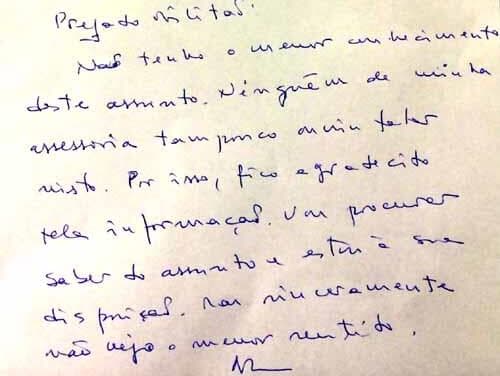 Prezado Militão:
Não tenho o menor conhecimento
deste assunto. Ninguém de minha
assessoria tampouco ouviu falar
nisto. Por isso, fico agradecido
pela informação. Vou procurar
saber do assunto e estou à sua
disposição. Mas sinceramente
não vejo o menor sentido.